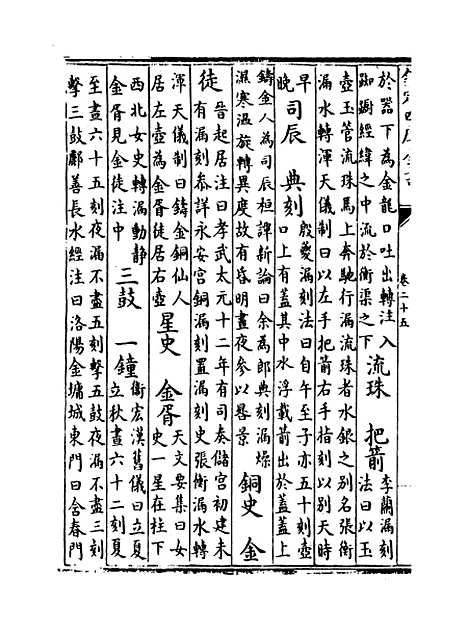 卷二十五
於器下為金龍口吐出轉注入
踟蹰經緯之中流於衡渠之下
流珠　把箭
李蘭漏刻
法曰以玉
壺玉管流珠馬上奔馳行漏流珠者水銀之別名張衡
漏水轉渾天儀制曰以左手把箭右手指刻以別天時
早
晚
司辰　典刻
殷夔漏刻法曰自午至子亦五十刻壺
口上有蓋其中水浮載箭出於蓋蓋上
鑄金人為司辰桓譚新論曰余為郎典刻漏燥
濕寒溫旋轉異度故有昏明晝夜參以晷景
銅史　金
徒
晉起居注曰孝武太元十二年有司奏儲宮初建未
有漏刻叅詳永安宮銅漏刻置漏刻史張衡漏水轉
渾天儀制曰鑄金銅仙人
居左壺為金胥徒居右壺
星史　金胥
天文要集曰女
史一星在柱下
西北女史轉漏動靜
金胥見金徒注中
三鼓　一鐘
衛宏漢舊儀曰立夏
立秋晝六十二刻夏
至晝六十五刻夜漏不盡五刻擊五鼓夜漏不盡三刻
擊三鼓酈善長水經注曰洛陽金墉城東門曰含春門